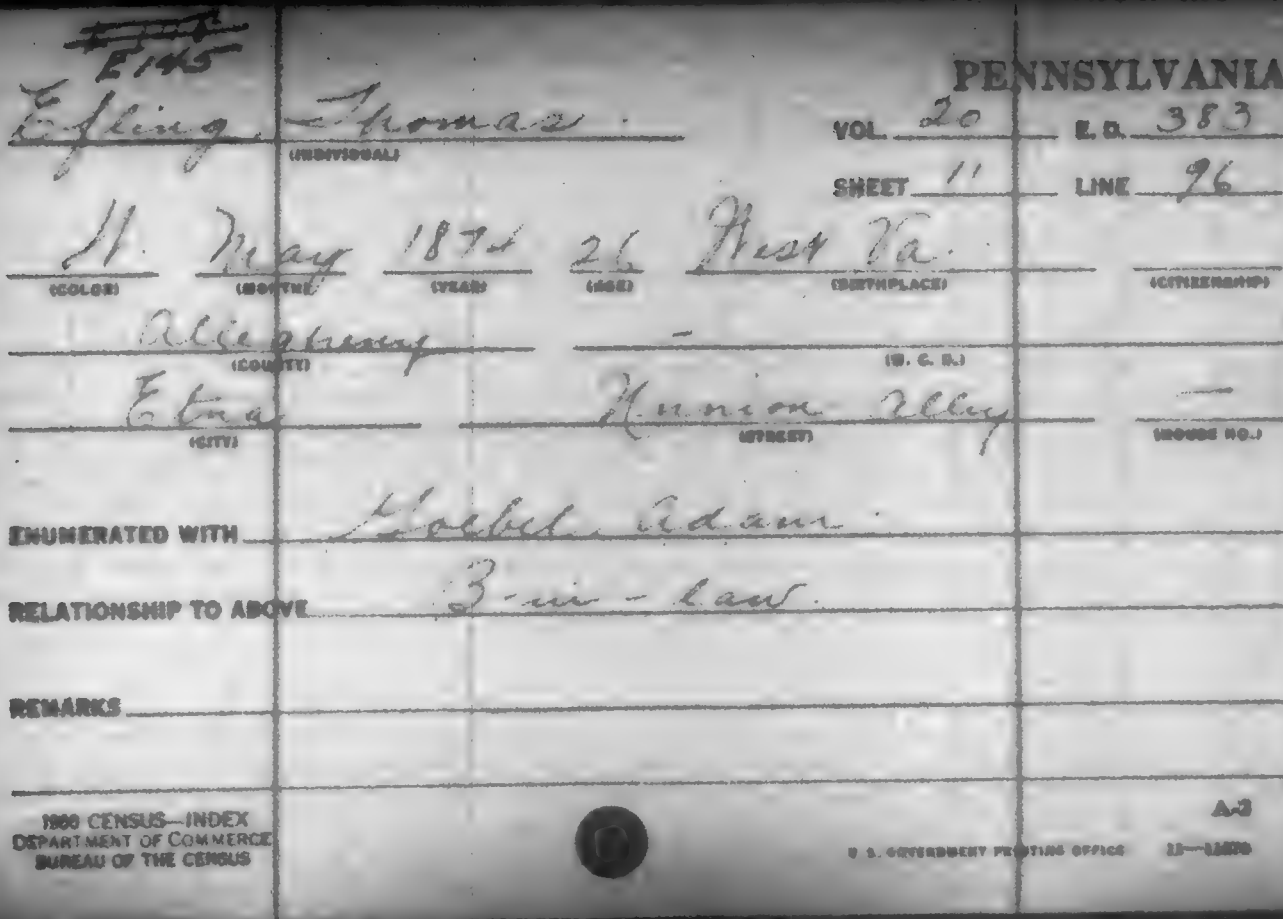 E 145
PENNSYLVANIA
Efling. Thomas.
(INDIVIDUAL)
VOL. 20 E. D. 383
SHEET 11 LINE 96
W. May 1874 26 West Va.
(COLOR) (MONTH) (YEAR) (AGE) (BIRTHPLACE) (CITIZENSHIP)
Allegheny -
(COUNTY) (M. C. D.)
Etna Alley —
(CITY) (STREET) (HOUSE NO.)
ENUMERATED WITH Goebel Adam.
RELATIONSHIP TO ABOVE B-in-law.
REMARKS
1900 CENSUS—INDEX
DEPARTMENT OF COMMERCE
BUREAU OF THE CENSUS
A-3
U. S. GOVERNMENT PRINTING OFFICE